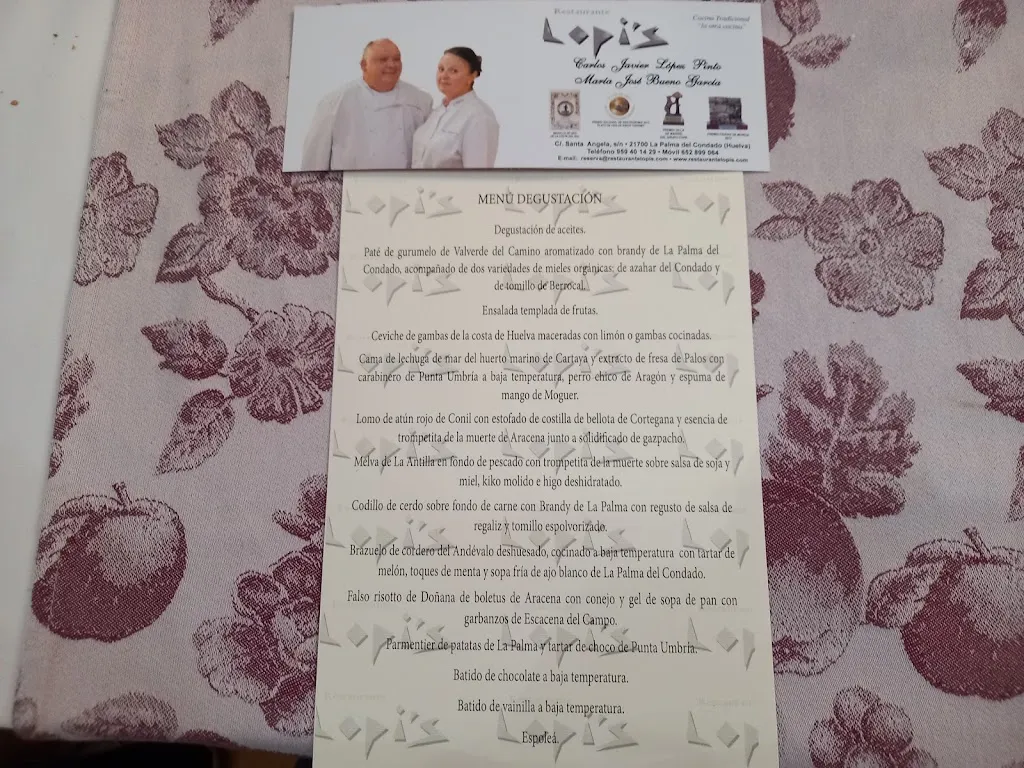 Restaurante
Lopi's
Cocina Tradicional
Carlos Javier López Pinto
María José Bueno García
C/. Santa Angela, s/n • 21700 La Palma del Condado (Huelva)
Teléfono 959 40 14 29 • Movil 652 899 064
E-mail: reserva@restaurantelopis.com • www.restaurantelopis.com
MENÚ DEGUSTACIÓN
Degustación de aceites.
Paté de gurumelo de Valverde del Camino aromatizado con brandy de La Palma del
Condado, acompañado de dos variedades de mieles orgánicas; de azahar del Condado y
de tomillo de Berrocal.
Ensalada templada de frutas.
Ceviche de gambas de la costa de Huelva maceradas con limón o gambas cocinadas.
Cama de lechuga de mar del huerto marino de Cartaya y extracto de fresa de Palos con
carabinero de Punta Umbría a baja temperatura, perro chico de Aragón y espuma de
mango de Moguer.
Lomo de atún rojo de Conil con estofado de costilla de bellota de Cortegana y esencia de
trompetita de la muerte de Aracena junto a solidificado de gazpacho.
Melva de La Antilla en fondo de pescado con trompetita de la muerte sobre salsa de soja y
miel, kiko molido e higo deshidratado.
Codillo de cerdo sobre fondo de carne con Brandy de La Palma con regusto de salsa de
regaliz y tomillo espolvorizado.
Brazuelo de cordero del Andévalo deshuesado, cocinado a baja temperatura con tartar de
melón, toques de menta y sopa fría de ajo blanco de La Palma del Condado.
Falso risotto de Doñana de boletus de Aracena con conejo y gel de sopa de pan con
garbanzos de Escacena del Campo.
Parmentier de patatas de La Palma y tartar de choco de Punta Umbría.
Batido de chocolate a baja temperatura.
Batido de vainilla a baja temperatura.
Espoleá.